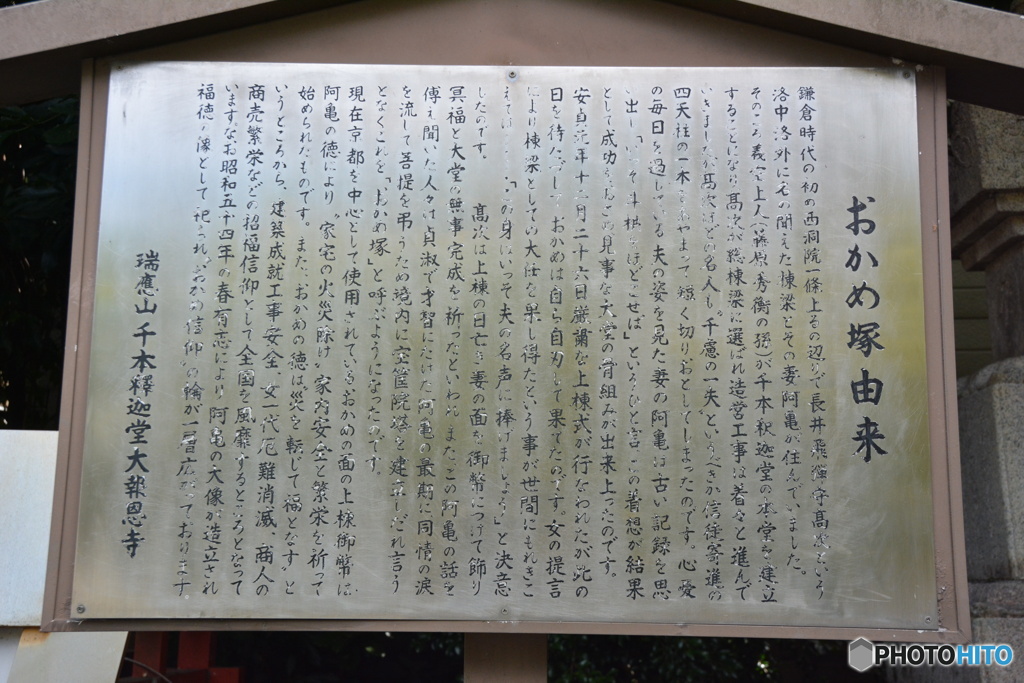 おかめ塚由来
鎌倉時代の初め西洞院一條上るの辺りで長井飛騨守高次という
洛中洛外に名の聞えた棟梁とその妻阿亀が住んでいました。
そのころ義空上人(藤原秀衡の孫)が千本釈迦堂の本堂を建立
することになり高次が総棟梁に選ばれ造営工事は着々と進んで
いきましたが高次ほどの名人も"千慮の一失"というべきか信徒寄進の
四天柱の一本をあやまって短く切りおとしてしまったのです。心憂
の毎日を過している夫の姿を見た妻の阿亀は古い記録を思
い出し「いっそ斗栱をほどこせば」というひと言、この着想が結果
として成功を収め見事な大堂の骨組みが出来上ったのです。
安貞元年十二月二十六日厳粛な上棟式が行なわれたが此の
日を待たずしておかめは自ら自刃して果てたのです。女の提言
により棟梁としての大任を果し得たという事が世間にもれきこ
えては"この身はいっそ夫の名声に捧げましょう"と決意
したのです。 高次は上棟の日亡き妻の面を御幣につけて飾り
冥福と大堂の無事完成を祈ったといわれまたこの阿亀の話を
傳え聞いた人々は貞淑で才智にたけた阿亀の最期に同情の涙
を流して菩提を弔うため境内に宝筐院塔を建立しだれ言う
となくこれを「おかめ塚」と呼ぶようになったのです。
現在京都を中心として使用されているおかめの面の上棟御幣は
阿亀の徳により"家宅の火災除け""家内安全と繁栄"を祈って
始められたものです。また、おかめの徳は"災を転じて福となす"と
いうところから、建築成就工事安全、女一代厄難消滅、商人の
商売繁栄などの招福信仰として全国を風靡するところとなって
いますなお昭和五十四年の春有志により阿亀の大像が造立され
福徳の像として祀られおかめ信仰の輪が一層広がっております
瑞應山千本釋迦堂大報恩寺
PHOTOHITO